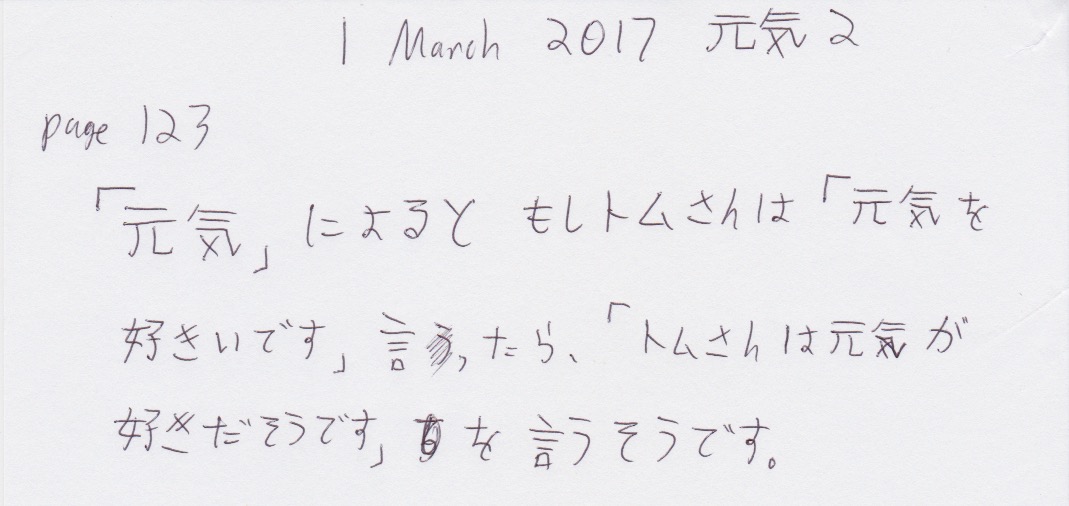 1 March 2017 元気2
page 123
「元気」によると もしトムさんは「元気を
好きいです」言ったら、「トムさんは元気が
好きだそうです」を言うそうです。